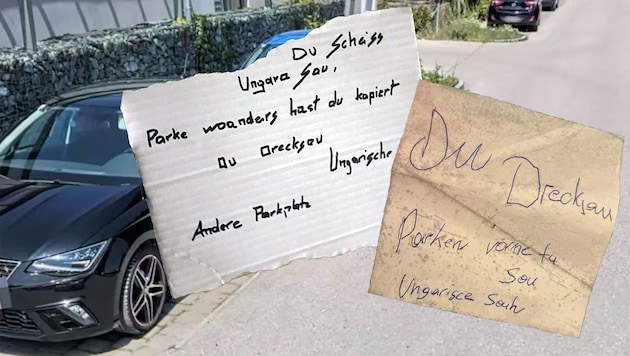 Du Scheiss
Ungara Sau,
Parke woanders hast du kapiert
Du Drecksau
Ungarische
Andere Parkplatz
Du
Drecksau
Parken vorne tu
Sou
Ungarisce Sauh